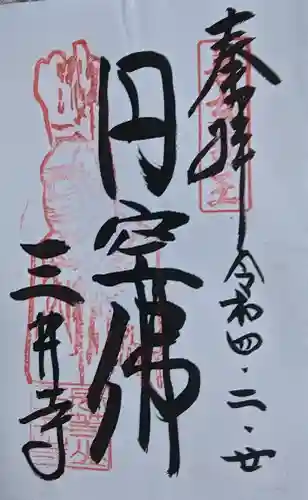 奉拝
令和四・二・廿
円空佛
三井寺